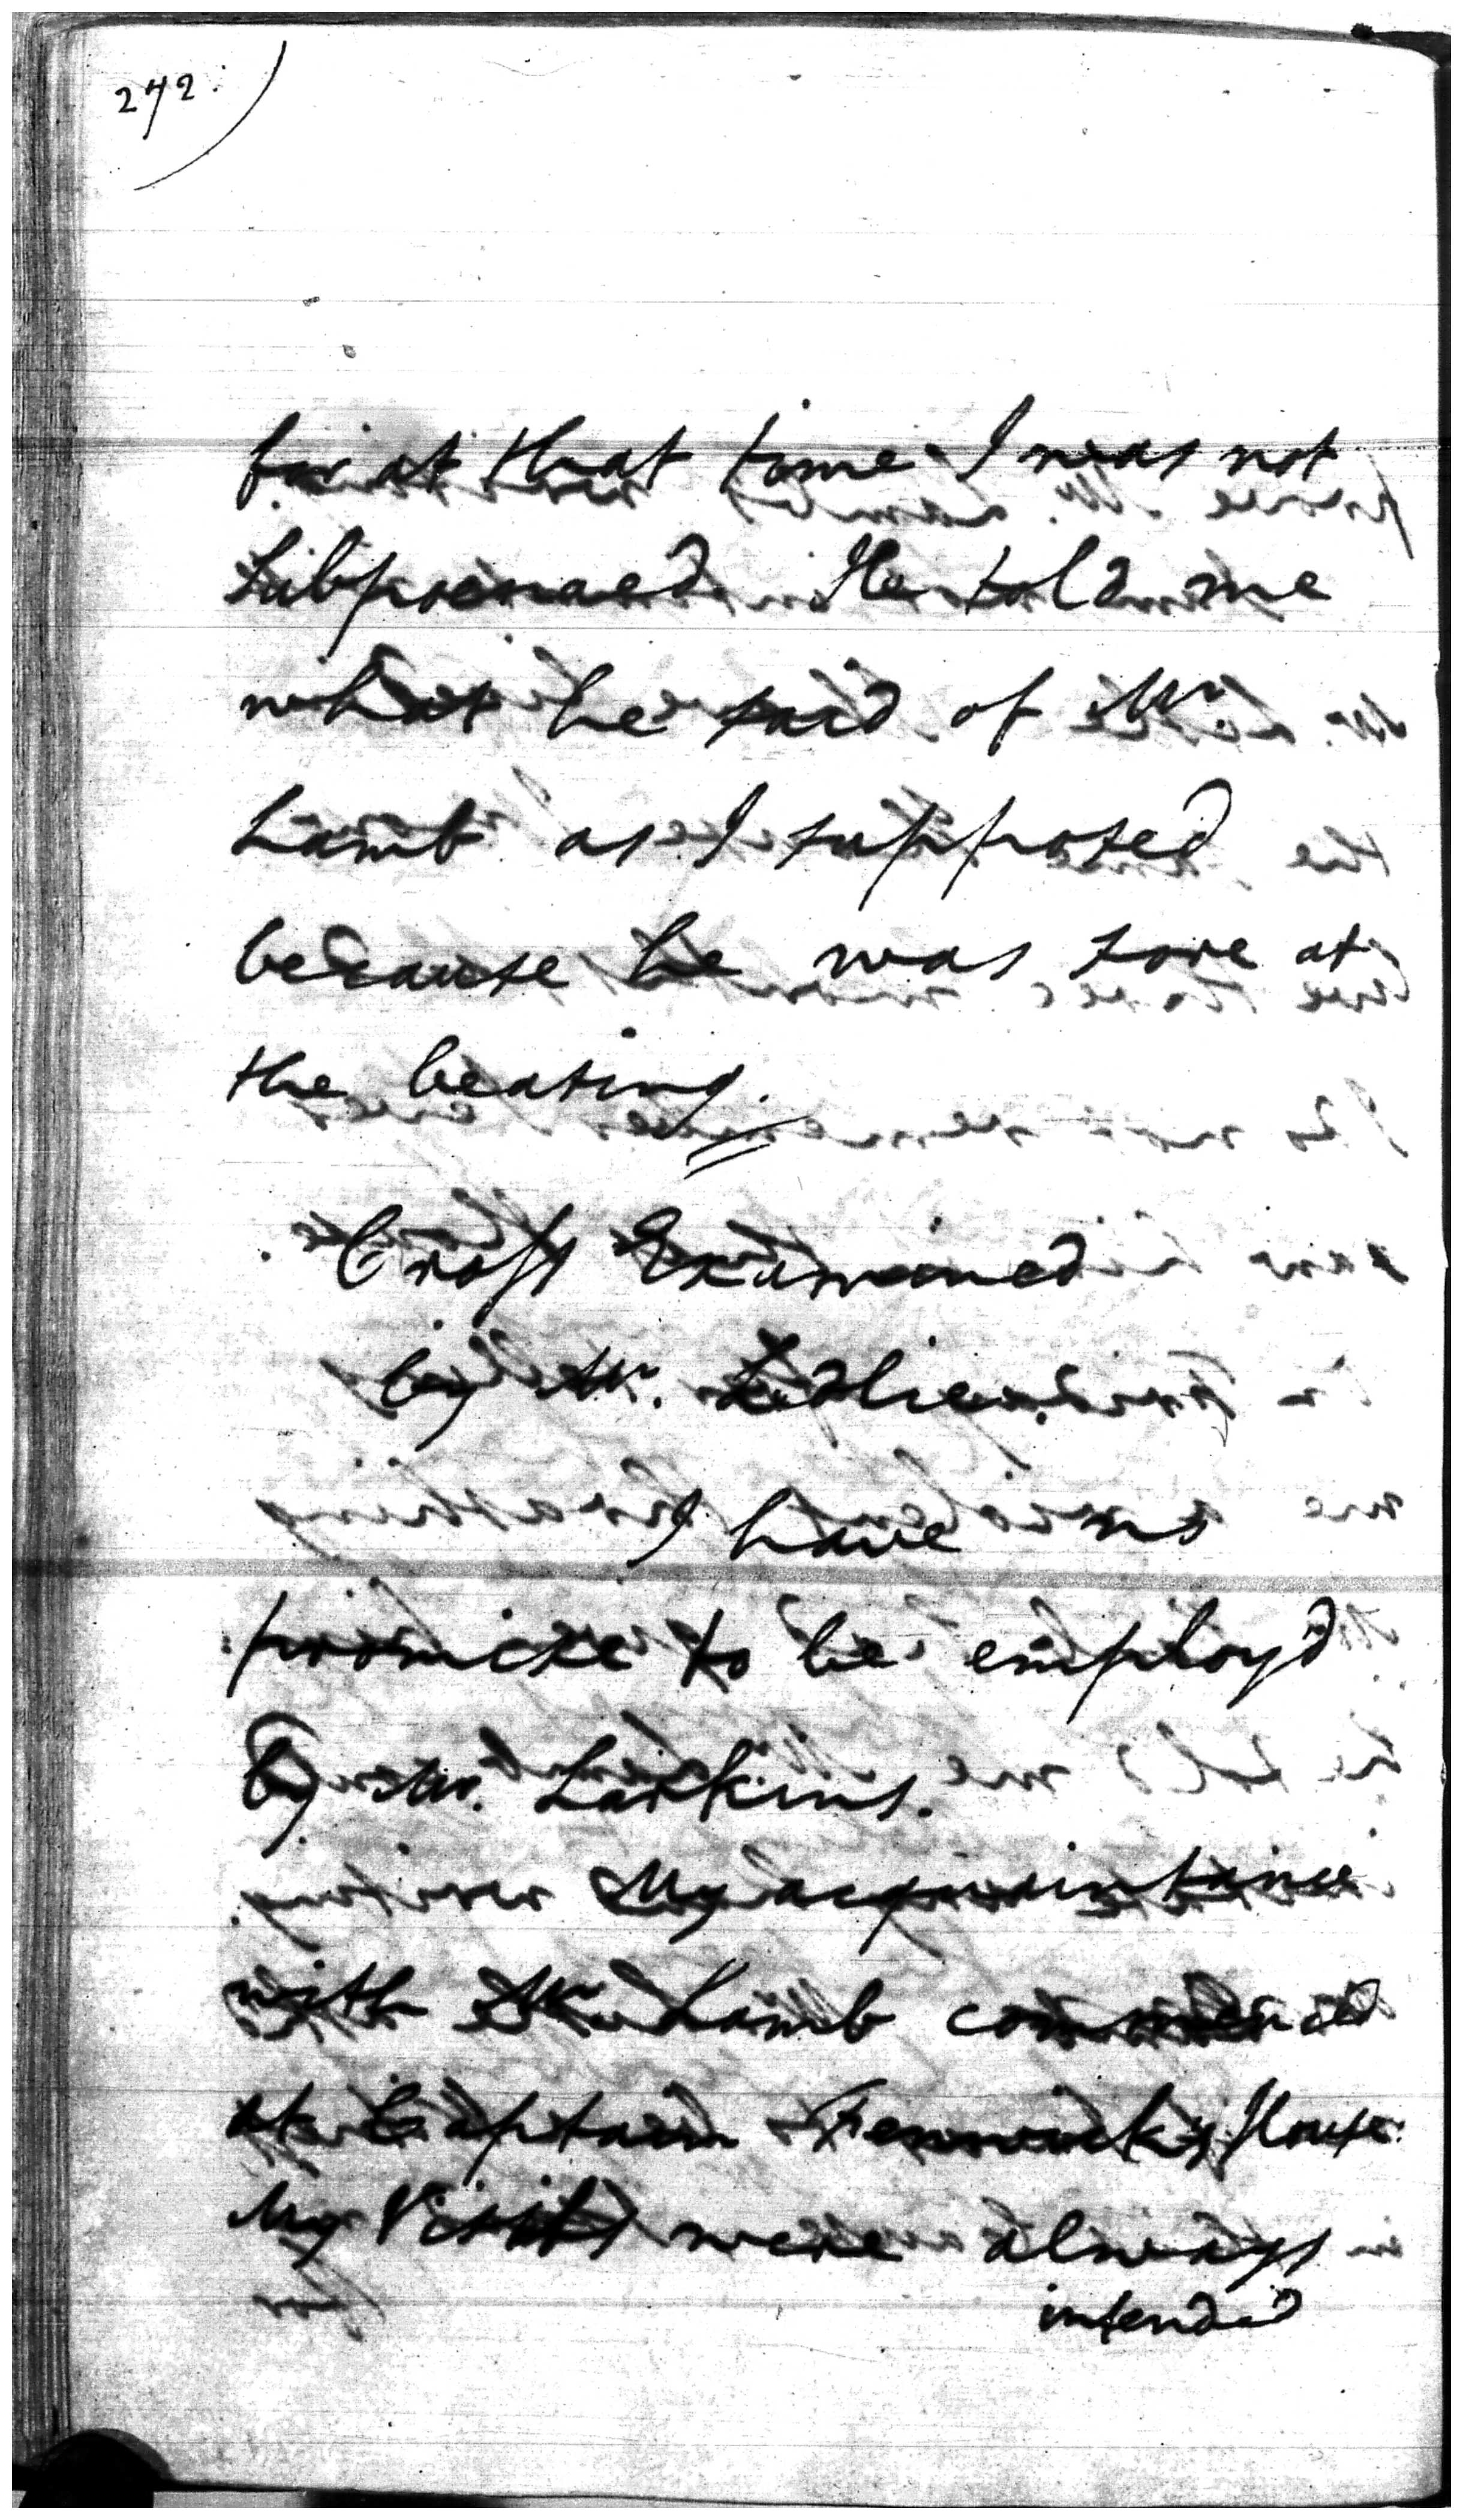 272.
for at that time I was not
Subpoenaed He told me
what he said of Mr.
Lamb as I supposed
because he was sore at
the beating.
Cross Examined
by Mr. Ledlie.
I have no
promise to be employ'd
by Mr. Larkins.
My acquaintance
with Mr. Lamb commenced
at Captain Fenwick's House
My Visits were always
intended